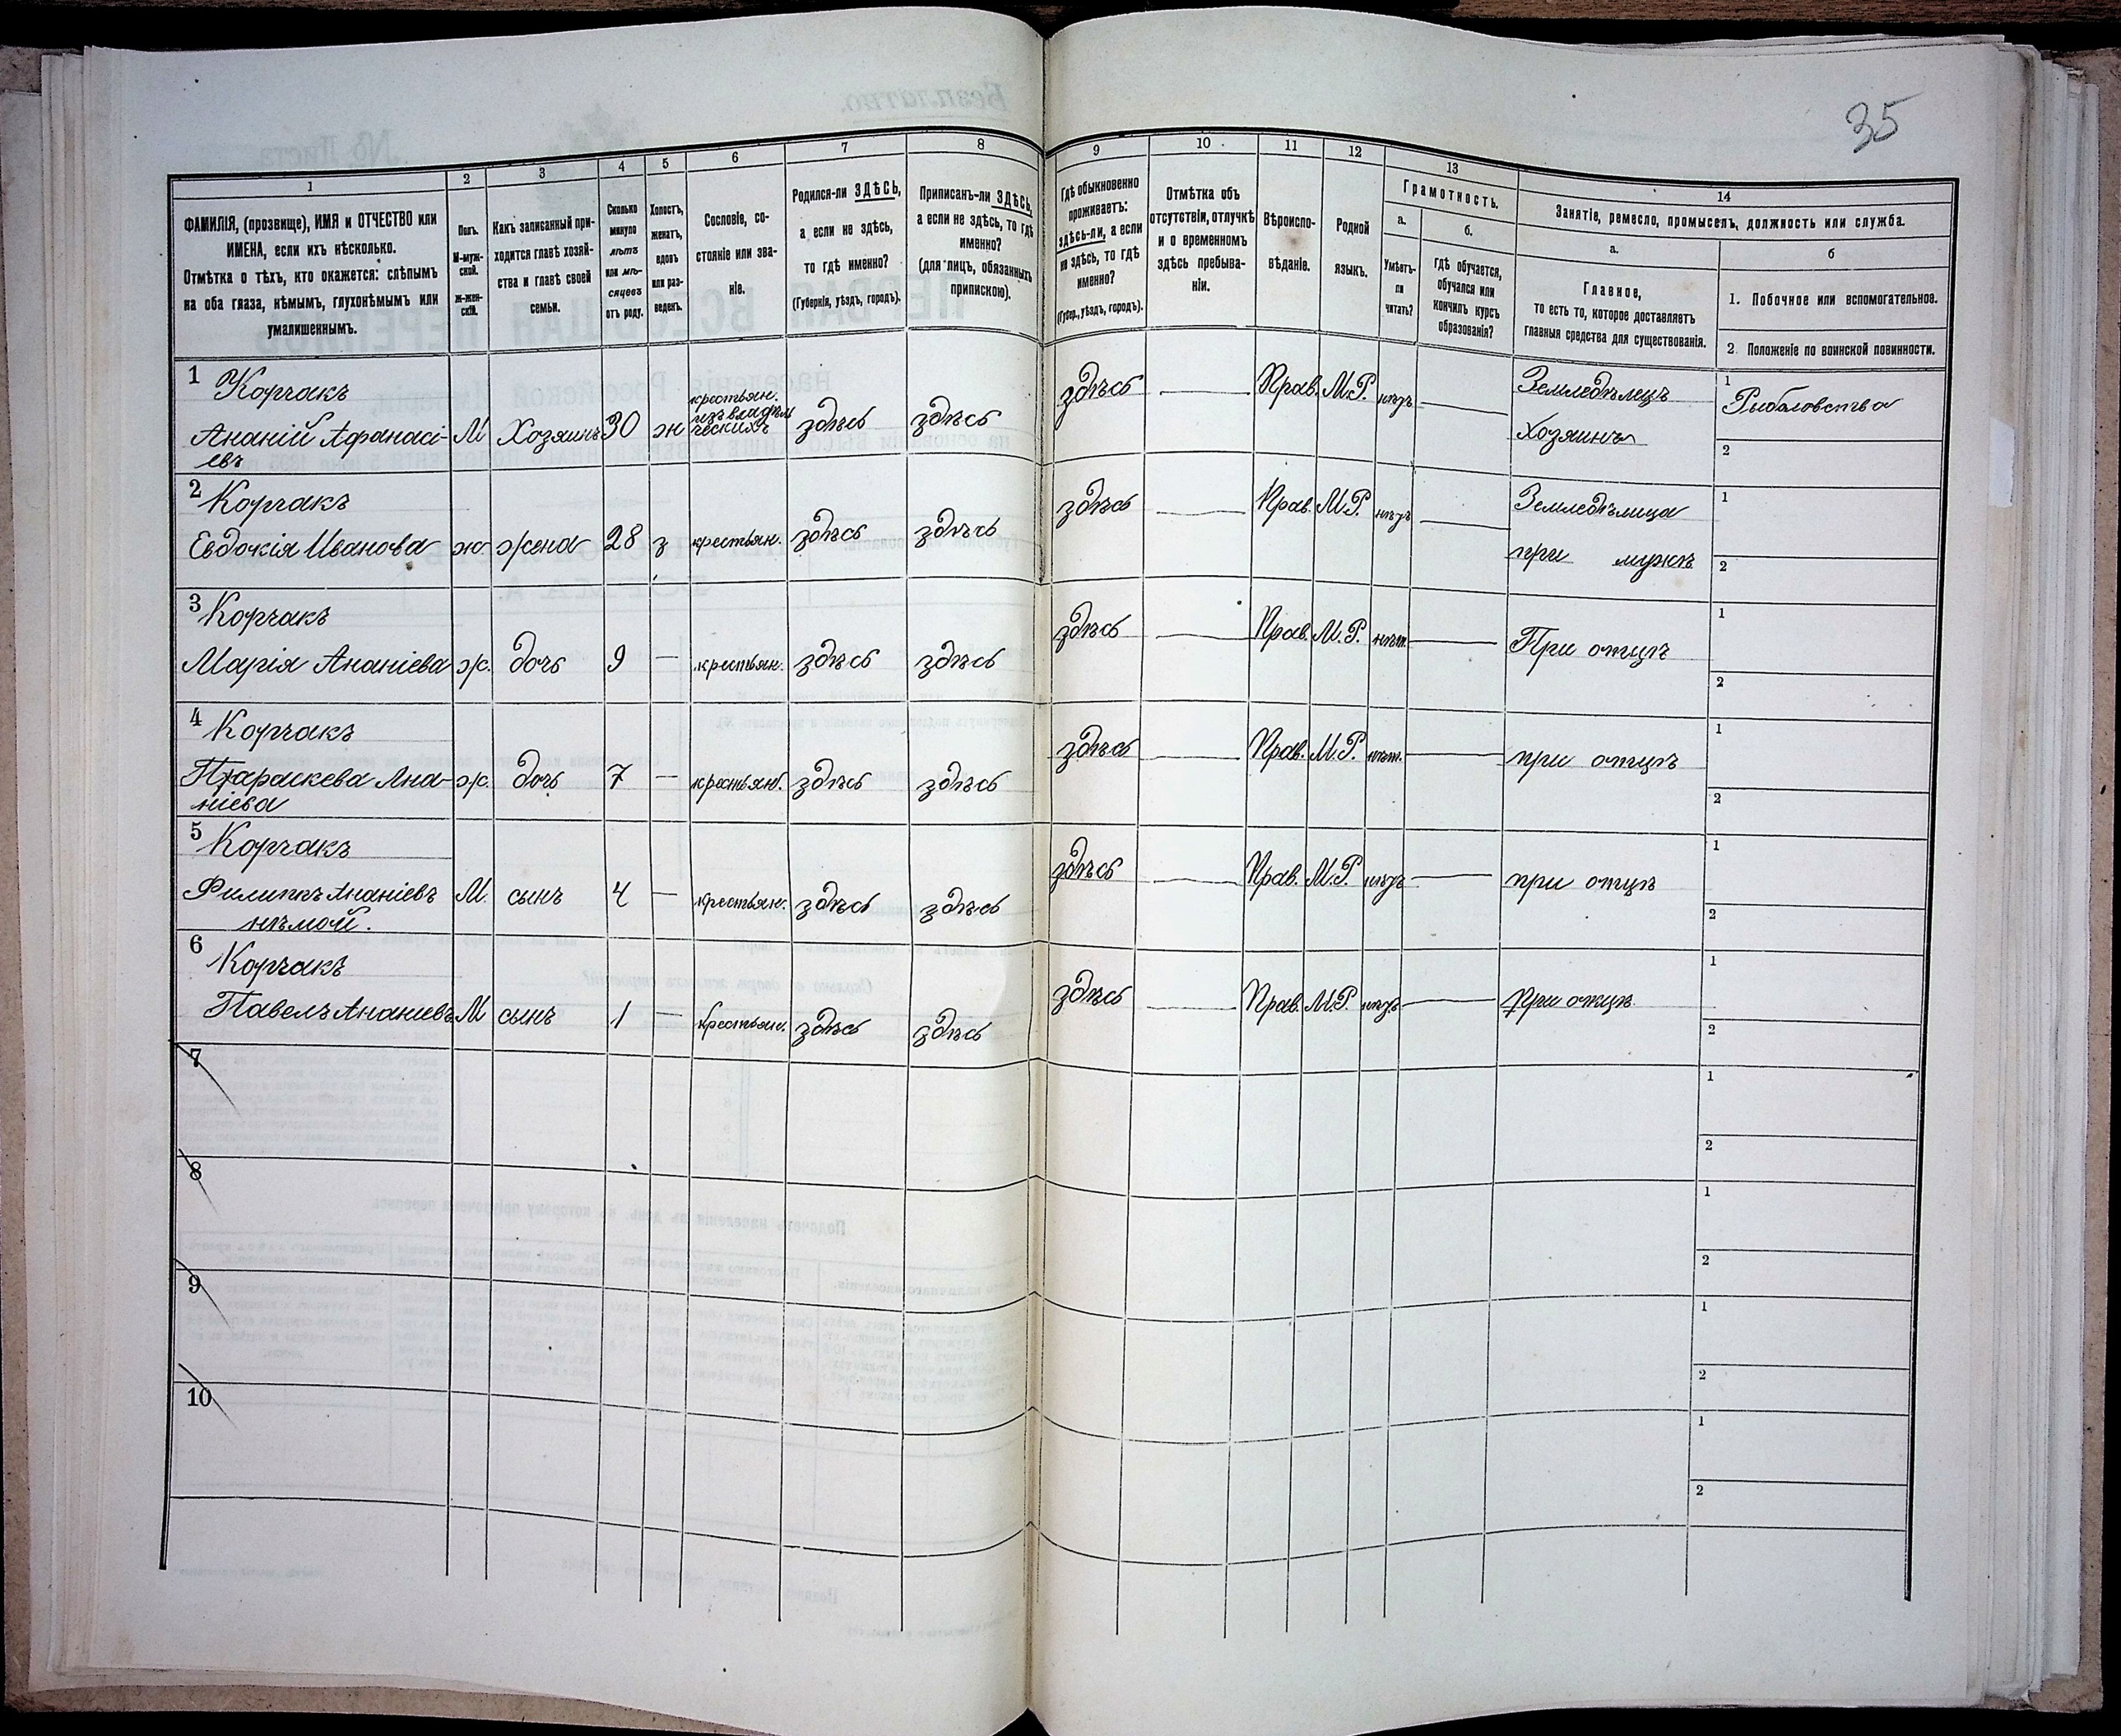 35
1
ФАМИЛІЯ, (прозвище), ИМЯ и ОТЧЕСТВО или
ИМЕНА, если ихъ нѣсколько.
Отмѣтка о тѣхъ, кто окажется: слѣпымъ
на оба глаза, нѣмымъ, глухонѣмымъ или
умалишеннымъ.
2
Полъ.
М-муж-
ской.
ж-жен-
скій.
3
Какъ записанный при-
ходится главѣ хозяй-
ства и главѣ своей
семьи.
4
Сколько
минуло
лѣтъ
или мѣ-
сяцевъ
отъ роду.
5
Холостъ,
женатъ,
вдовъ
или раз-
веденъ.
6
Сословіе, со-
стояніе или зва-
ніе.
7
Родился-ли ЗДѢСЬ,
а если не здѣсь,
то гдѣ именно?
(Губернія, уѣздъ, городъ).
8
Приписанъ-ли ЗДѢСЬ,
а если не здѣсь, то гдѣ
именно?
(для лицъ, обязанныхъ
припискою).
9
Гдѣ обыкновенно
проживаетъ:
здѣсь-ли, а если
не здѣсь, то гдѣ
именно?
(Губер., уѣздъ, городъ).
10
Отмѣтка объ
отсутствіи, отлучкѣ
и о временномъ
здѣсь пребыва-
ніи.
11
Вѣроиспо-
вѣданіе.
12
Родной
языкъ.
13
Грамотность.
а.
Умѣетъ-
ли
читать?
б.
гдѣ обучается,
обучался или
кончилъ курсъ
образованія?
14
Занятіе, ремесло, промыселъ, должность или служба.
а.
Главное,
то есть то, которое доставляетъ
главныя средства для существованія.
б
1. Побочное или вспомогательное.
2. Положеніе по воинской повинности.
1 Корчакъ
Ананій Афанасі-
евъ
М Хозяинъ 30 ж
крестьян.
изъ владѣль
ческихъ
здѣсь здѣсь здѣсь — Прав. М.Р. нѣтъ —
Земледѣлецъ
Хозяинъ
1 Рыболовство
2
2 Корчакъ
Евдокія Иванова ж жена 28 з крестьян. здѣсь здѣсь здѣсь — Прав. М.Р. нѣтъ —
Земледѣлица
при мужѣ
1
2
3 Корчакъ
Марія Ананіева ж. дочь 9 — крестьян. здѣсь здѣсь здѣсь — Прав. М.Р. нѣт. — При отцѣ
1
2
4 Корчакъ
Параскева Ана-
ніева
ж. дочь 7 — крестьян. здѣсь здѣсь здѣсь — Прав. М.Р. нѣт. — при отцѣ
1
2
5 Корчакъ
Филиппъ Ананіевъ
нѣмой.
М. сынъ 4 — крестьян. здѣсь здѣсь здѣсь — Прав. М.Р. нѣтъ — при отцѣ
1
2
6 Корчакъ
Павелъ Ананиевъ М сынъ 1 — крестьян. здѣсь здѣсь здѣсь — Прав. М.Р. нѣтъ — при отцѣ
1
2
7
1
2
8
1
2
9
1
2
10
1
2